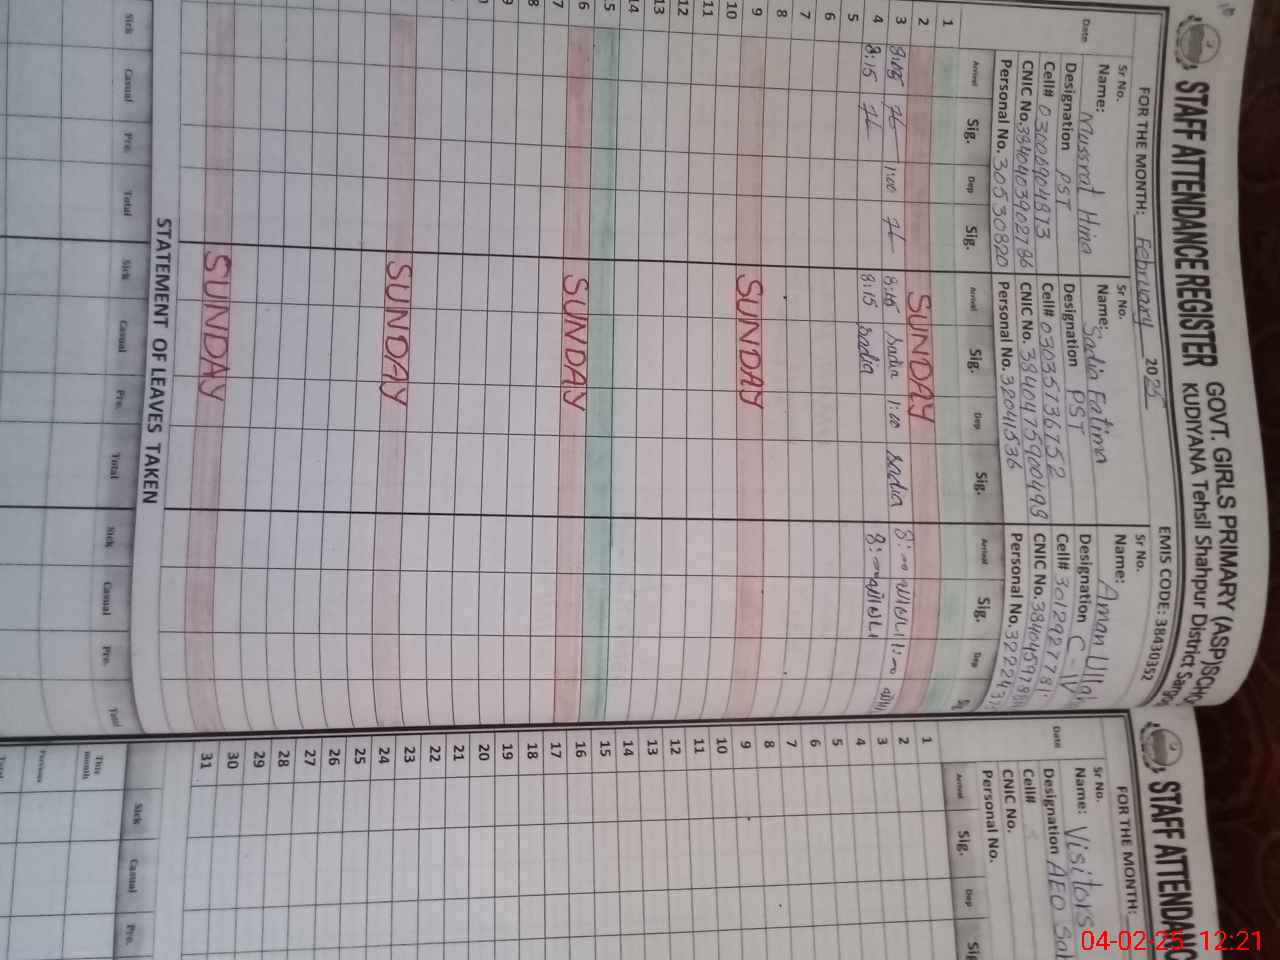 STAFF ATTENDANCE REGISTER
GOVT. GIRLS PRIMARY (ASP)SCHO
KUDIYANA Tehsil Shahpur District Sarg
FOR THE MONTH: February 2025
EMIS CODE: 38430352
Sr No.
Name: Mussrat Hina
Designation PST
Cell# 03006904873
CNIC No. 3840403902786
Personal No. 30530820
Sr No.
Name: Sadia Fatima
Designation PST
Cell# 03035736752
CNIC No. 3840475900498
Personal No. 32041536
Sr No.
Name: Aman Ullah
Designation C-IV
Cell# 3012927781
CNIC No. 384045978
Personal No. 3222437
Date
Arrival Sig. Dep Sig. Arrival Sig. Dep Sig. Arrival Sig. Dep
1
2 SUNDAY
3 8:15 1:00 8:15 sadia 1:00 sadia
4 8:15 8:15 sadia
5
6
7
8
9 SUNDAY
10
11
12
13
14
15
16 SUNDAY
7
8
9
SUNDAY
SUNDAY
STATEMENT OF LEAVES TAKEN
Sick Casual Pre. Total Sick Casual Pre. Total Sick Casual Pre. Total
STAFF ATTENDANC
FOR THE MONTH:
Sr No.
Name: Visitors
Designation AEO
Cell#
CNIC No.
Personal No.
Date
Arrival Sig. Dep Sig
1
2
3
4
5
6
7
8
9
10
11
12
13
14
15
16
17
18
19
20
21
22
23
24
25
26
27
28
29
30
31
Sick Casual Pre.
This month
Previous
Total
04-02-25 12:21